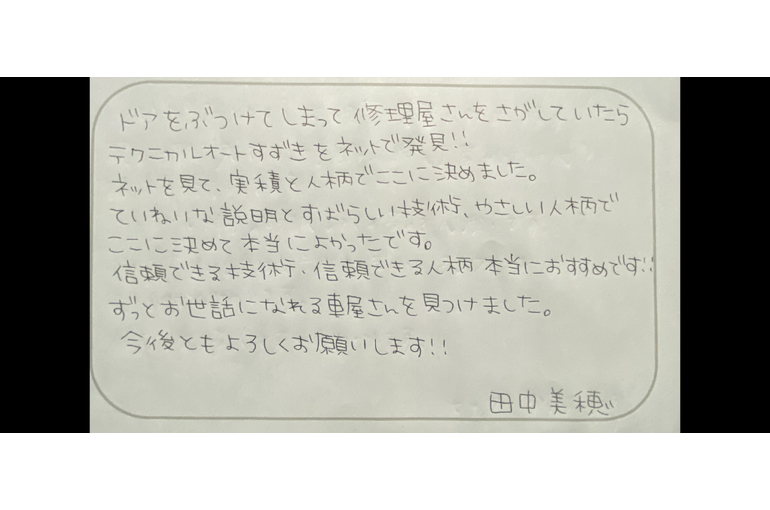 ドアをぶつけてしまって修理屋さんをさがしていたら
テクニカルオートすずきをネットで発見!!
ネットを見て、実積と人柄でここに決めました。
ていねいな説明とすばらしい技術、やさしい人柄で
ここに決めて本当によかったです。
信頼できる技術、信頼できる人柄 本当におすすめです!!
ずっとお世話になれる車屋さんを見つけました。
今後ともよろしくお願いします!!
田中美穂